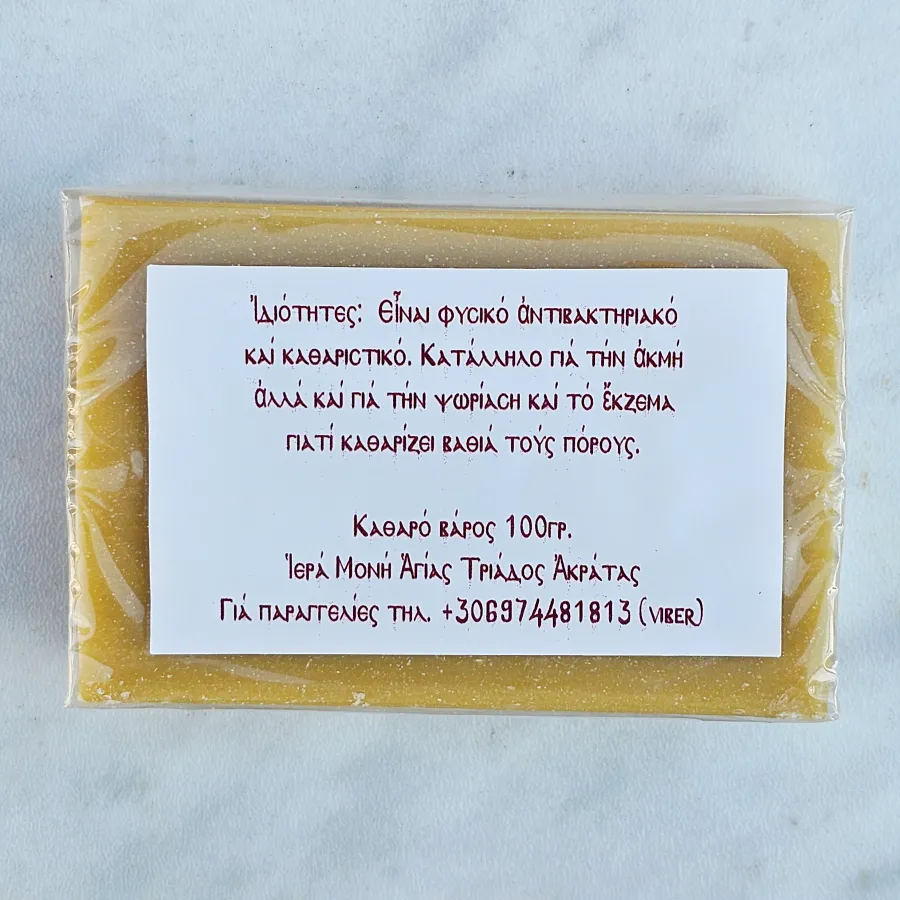 Ἰδιότητες: Εἶναι φυσικό ἀντιβακτηριακό
καί καθαριστικό. Κατάλληλο γιά τήν ἀκμή
ἀλλά καί γιά τήν ψωρίαση καί τό ἔκζεμα
γιατί καθαρίζει βαθιά τούς πόρους.
Καθαρό βάρος 100γρ.
Ἱερά Μονή Ἁγίας Τριάδος Ἀκράτας
Γιά παραγγελίες τηλ. +306974481813 (VIBER)